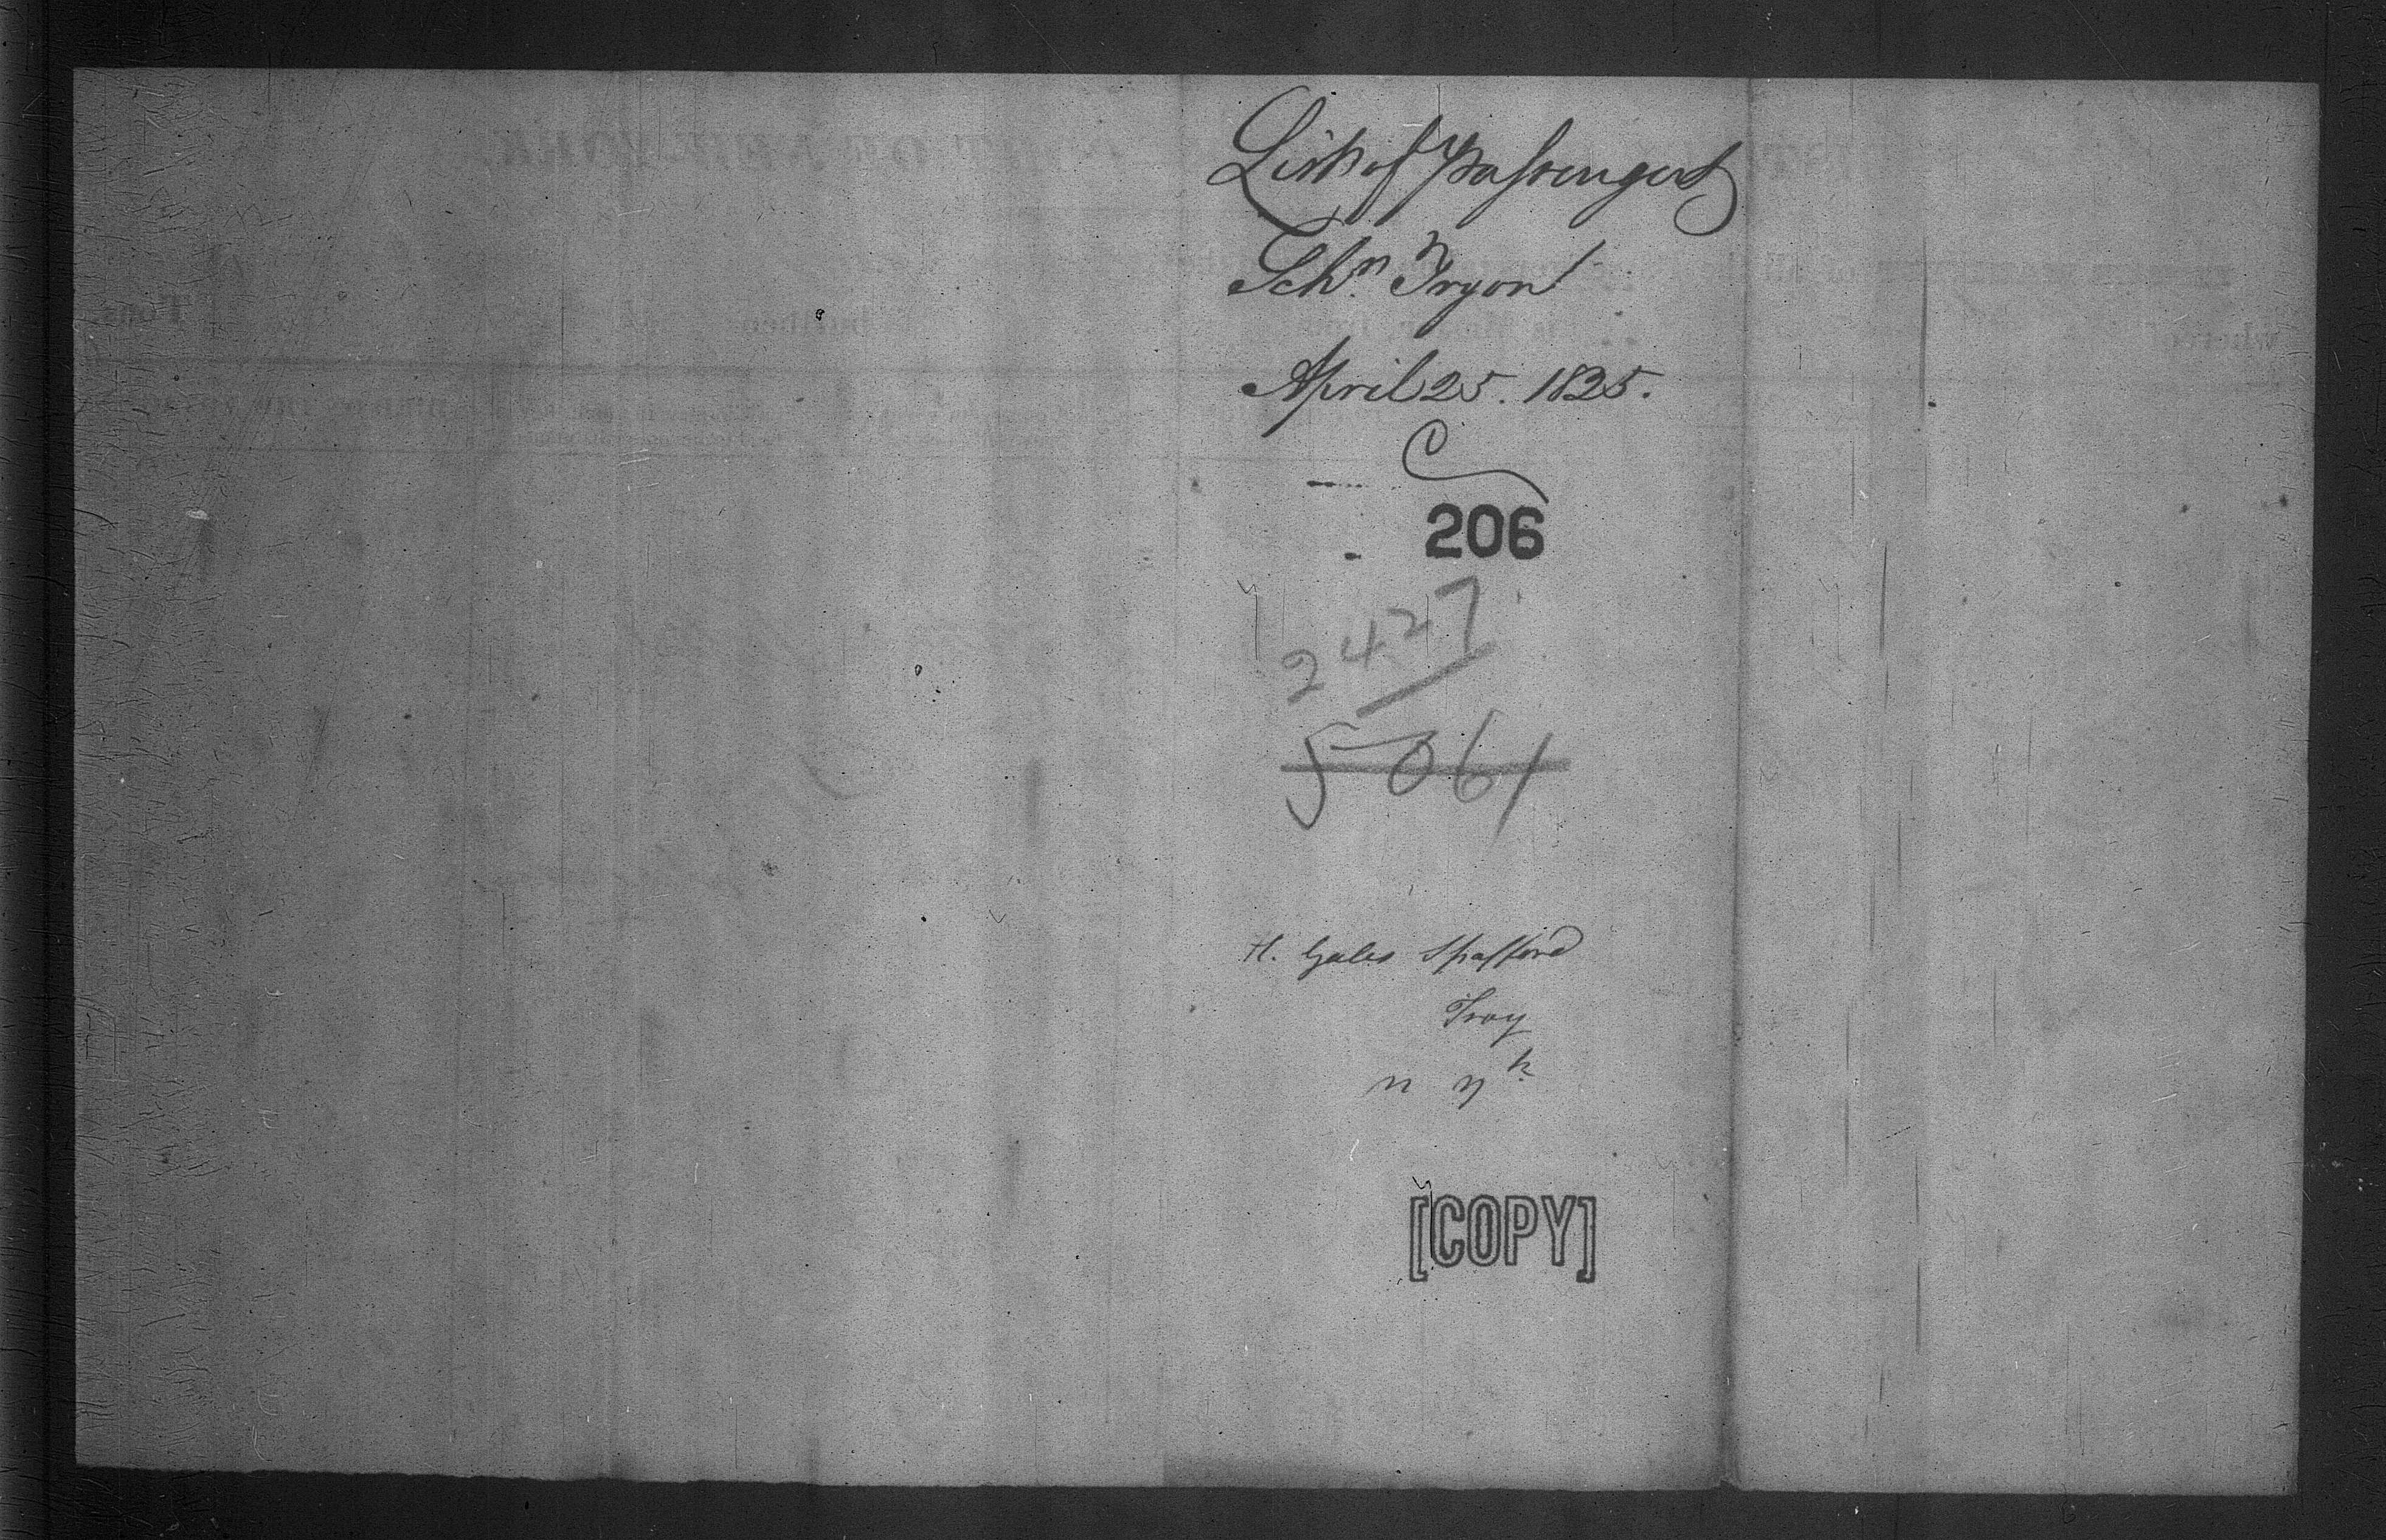 List of Passengers
Schr. Tryon
April 25. 1825.
206
2427
5061
H. Gales Spafford
Troy
N Yk.
[COPY]